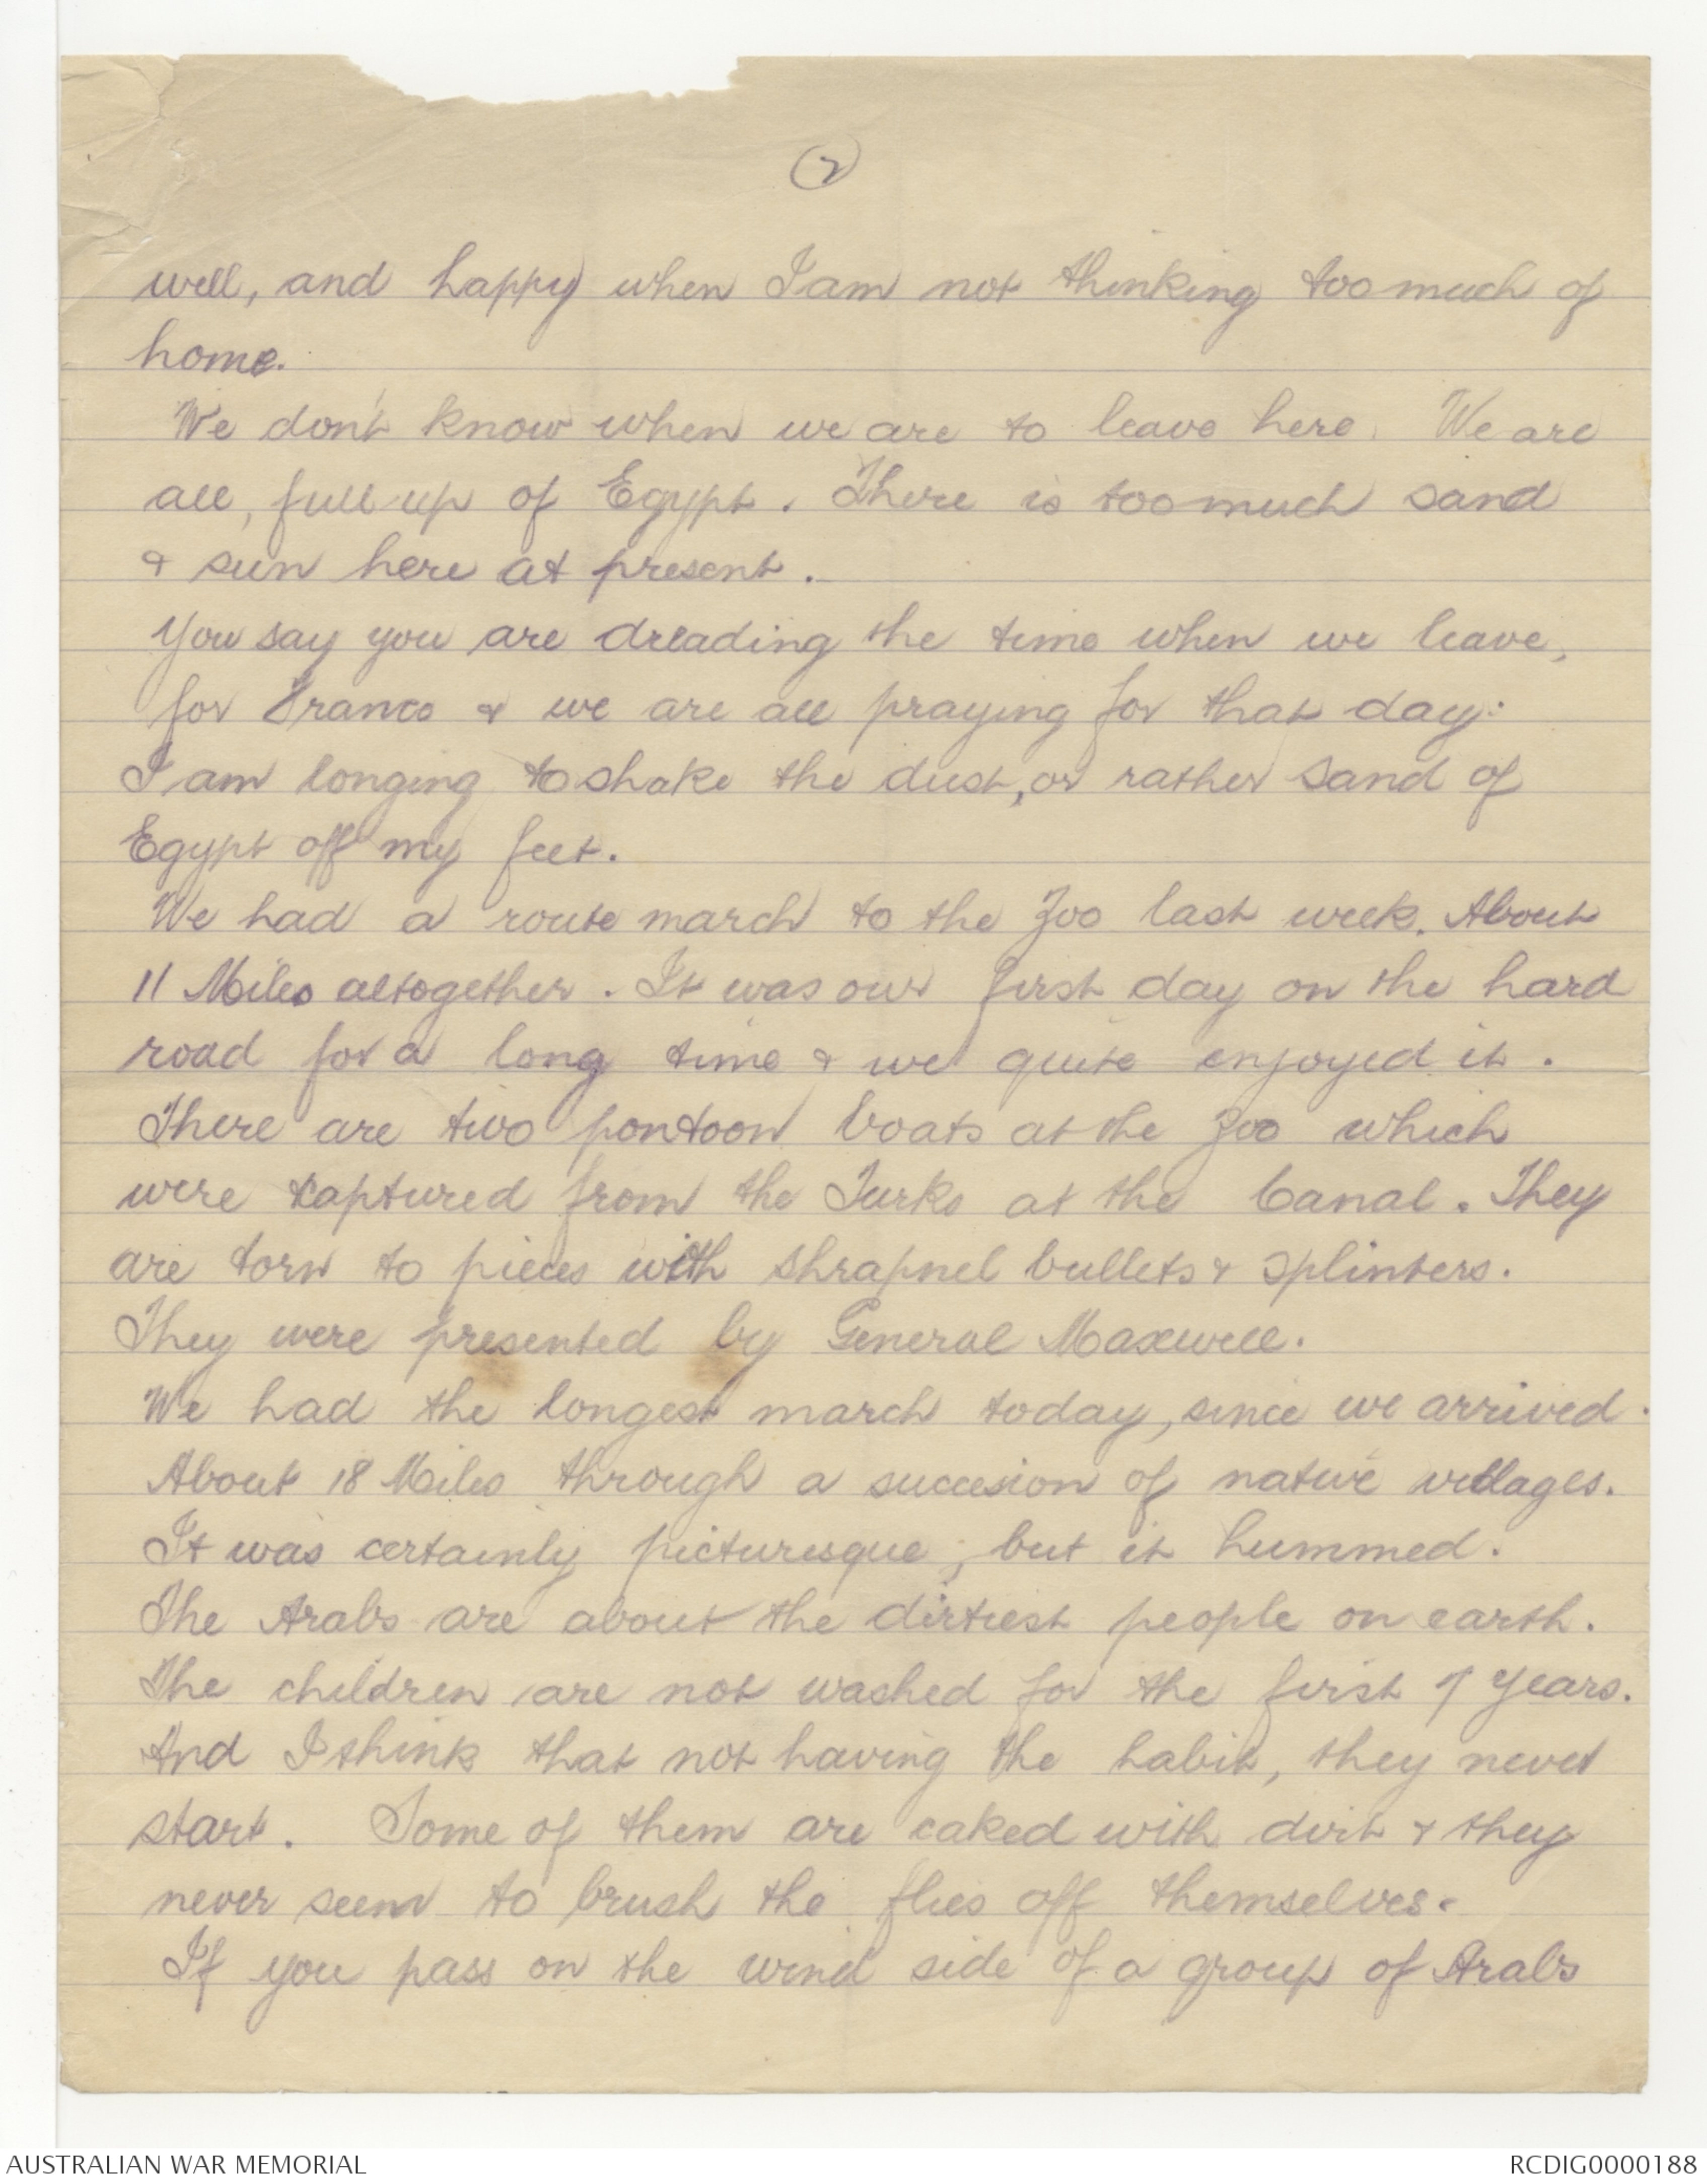 2
well, and happy when I am not thinking too much of
home.
We don't know when we are to leave here. We are
all, full up of Egypt. There is too much sand
& sun here at present.
You say you are dreading the time when we leave,
for France & we are all praying for that day.
I am longing to shake the dust, or rather sand of
Egypt off my feet.
We had a route march to the Zoo last week. About
11 Miles altogether. It was our first day on the hard
road for a long time & we quite enjoyed it.
There are two pontoon boats at the Zoo which
were captured from the Turks at the Canal. They
are torn to pieces with shrapnel bullets & splinters.
They were presented by General Maxwell.
We had the longest march today, since we arrived.
About 18 Miles through a succesion of native villages.
It was certainly picturesque, but it hummed.
The Arabs are about the dirtiest people on earth.
The children are not washed for the first 7 years.
And I think that not having the habit, they never
start. Some of them are caked with dirt & they
never seem to brush the flies off themselves.
If you pass on the wind side of a group of Arabs
AUSTRALIAN WAR MEMORIAL
RCDIG0000188